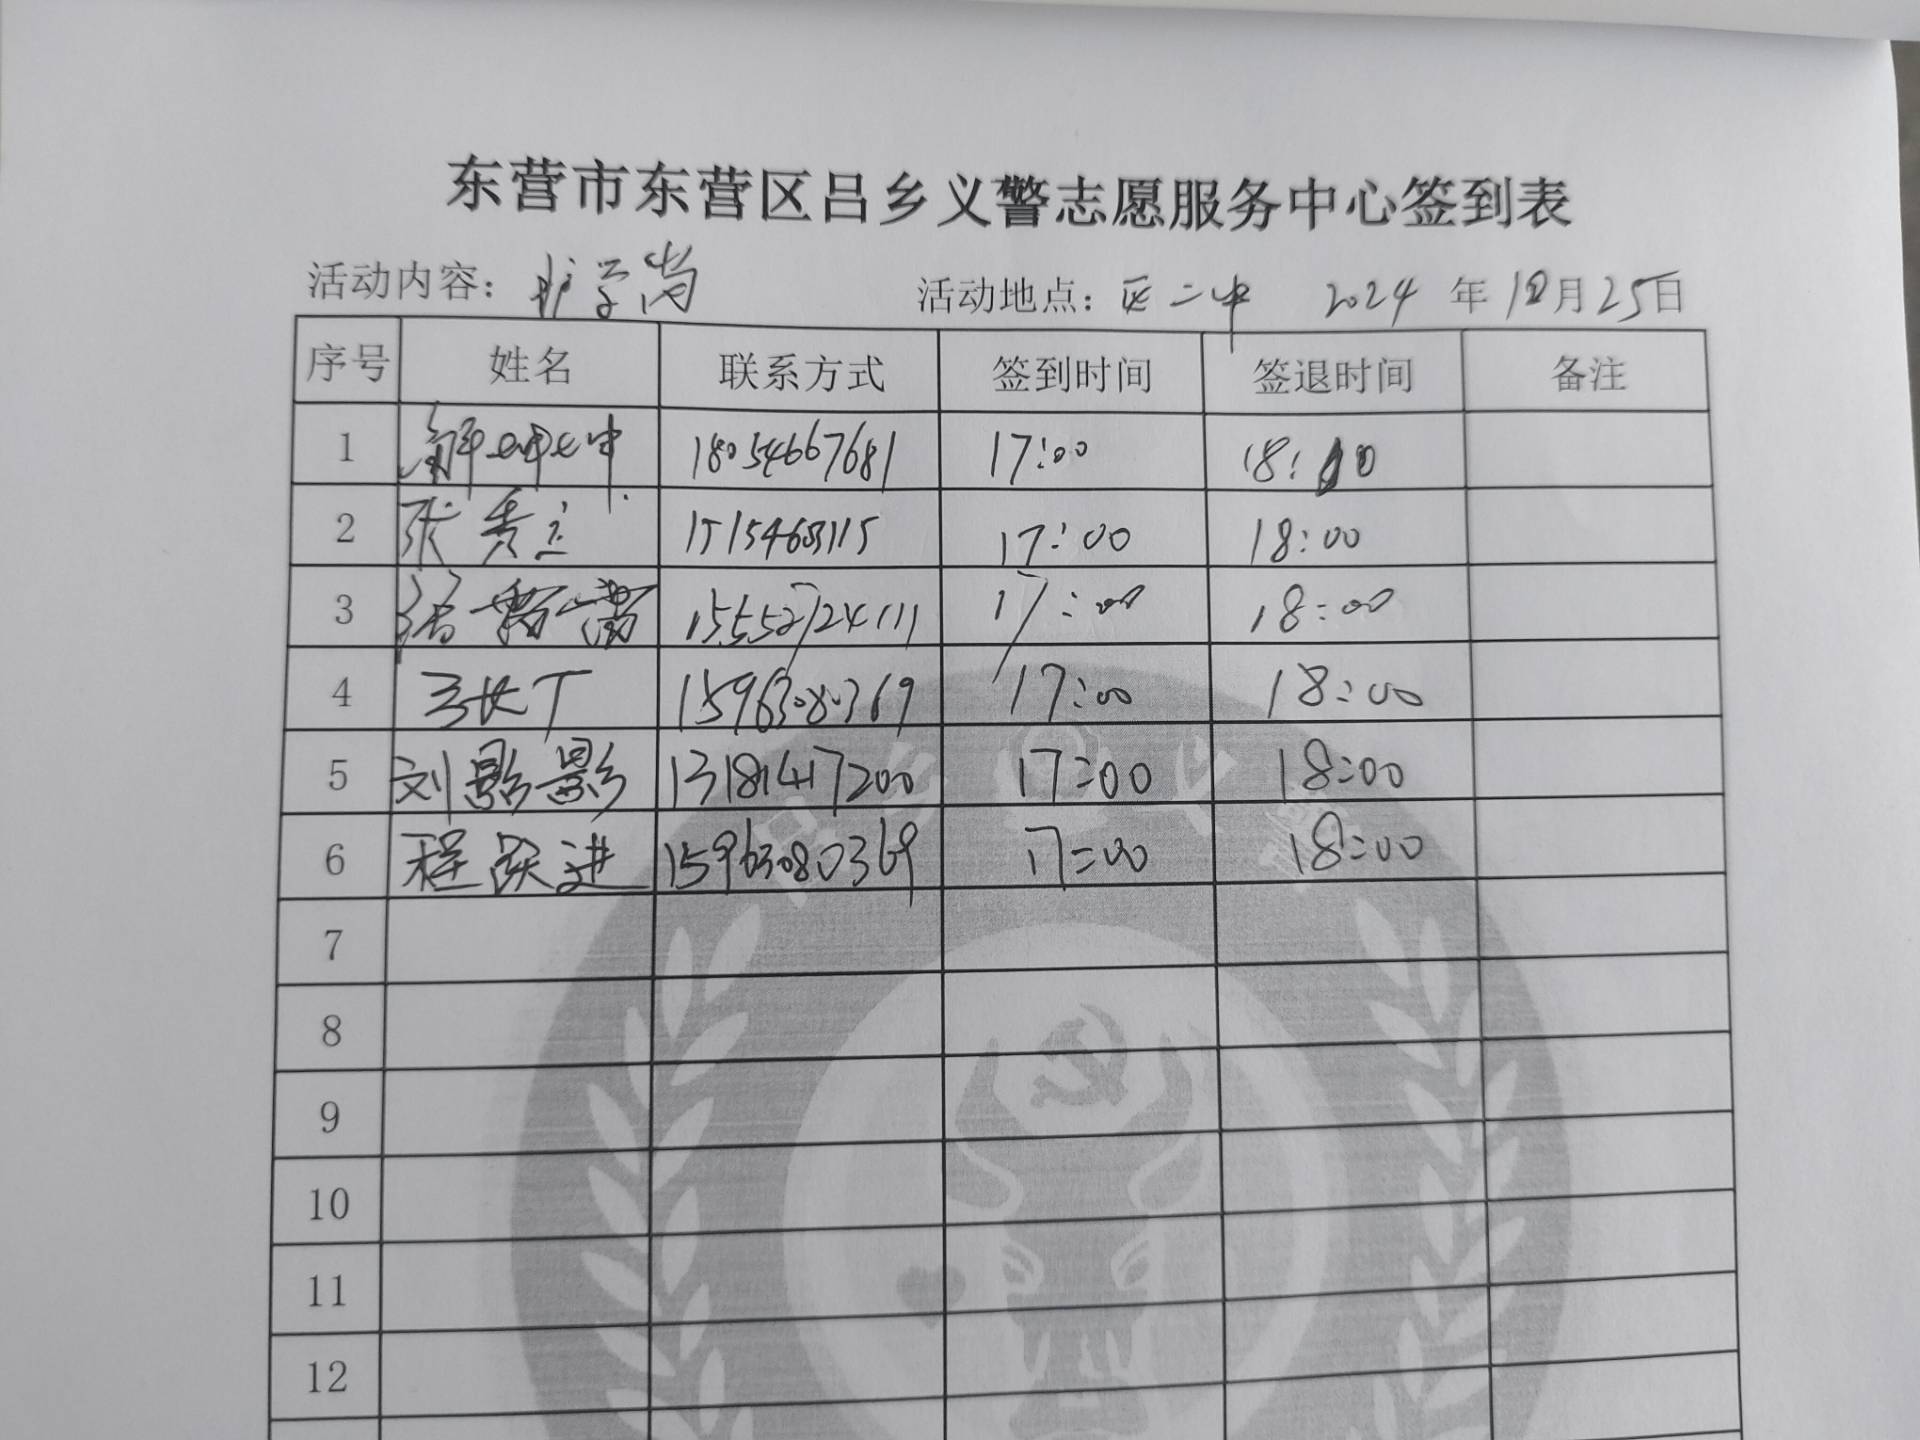 东营市东营区吕乡义警志愿服务中心签到表
活动内容：护学岗 活动地点：区二中 2024 年 月 25 日
序号 姓名 联系方式 签到时间 签退时间 备注
1 解 18054667681 17:00 18:10
2 张秀兰 17:00 18:00
3 15552724111 17:00 18:00
4 15963080369 17:00 18:00
5 刘影影 13181417200 17:00 18:00
6 程跃进 15963080369 17:00 18:00
7
8
9
10
11
12